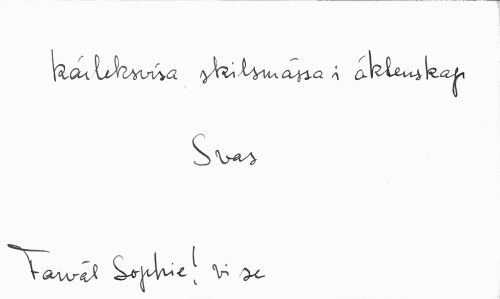 kärleksvisa skilsmässa i äktenskap
Svas
Farväl Sophie! vi se